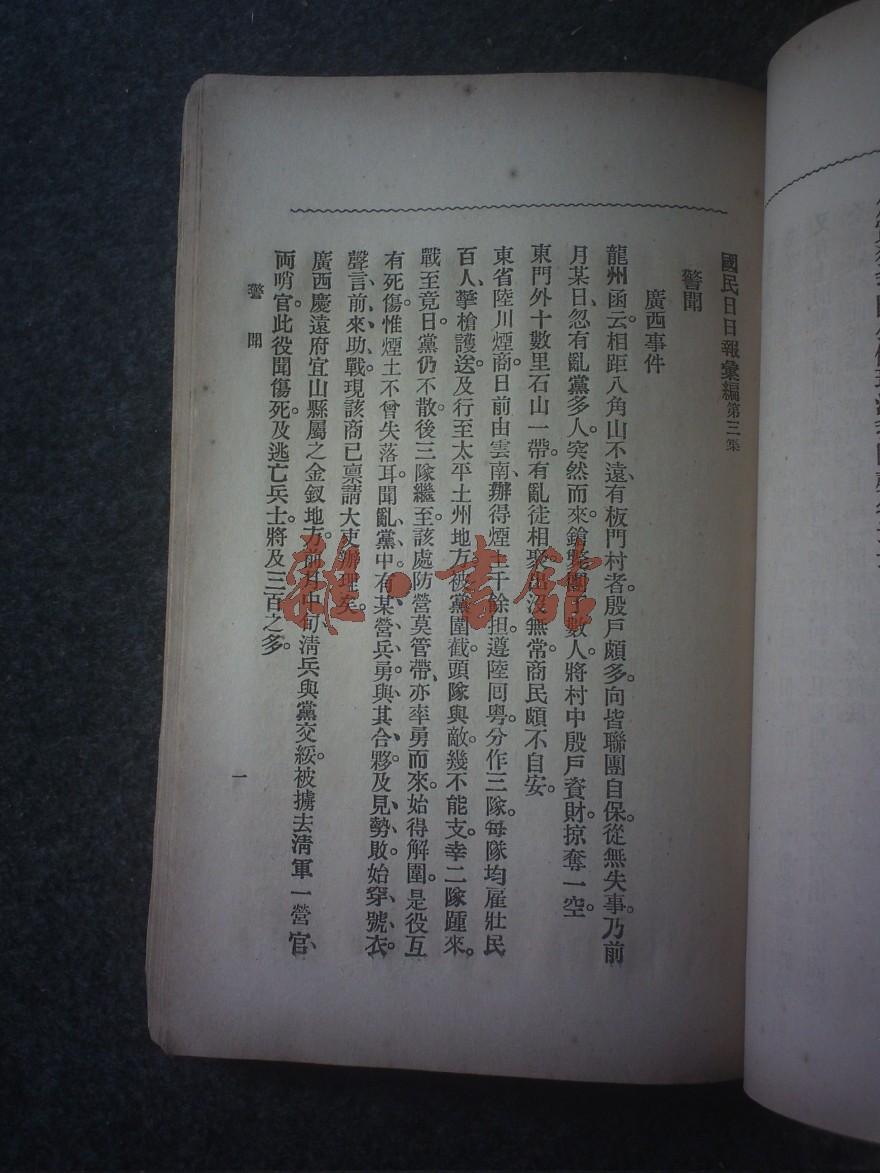 國民日日報彙編第三集
警聞
廣西事件
龍州函云相距八角山不遠、有板門村者。殷戶頗多。向皆聯團自保。從無失事。乃前
月某日、忽有亂黨多人。突然而來。鎗斃團丁數人。將村中殷戶資財。掠奪一空。
東門外十數里石山一帶。有亂徒相聚。出沒無常。商民頗不自安。
東省陸川煙商。日前由雲南、辦得煙土千餘担。遵陸囘粵。分作三隊。每隊均雇壯民
百人、擎槍護送。及行至太平土州地方。被黨圍截。頭隊與敵。幾不能支。幸二隊踵來。
戰至竟日。黨仍不散。後三隊繼至。該處防營莫管帶、亦率勇而來。始得解圍。是役互
有死傷。惟煙土不曾失落耳。聞亂黨中、有某營兵勇、與其合夥。及見勢敗、始穿號衣。
聲言、前來助戰。現該商已禀請大吏辦理矣。
廣西慶遠府宜山縣屬之金釵地方。前月中旬、清兵與黨交綏。被擄去清軍一營官、
両哨官。此役聞傷死及逃亡兵士。將及三百之多。
警聞
一
雜·書館